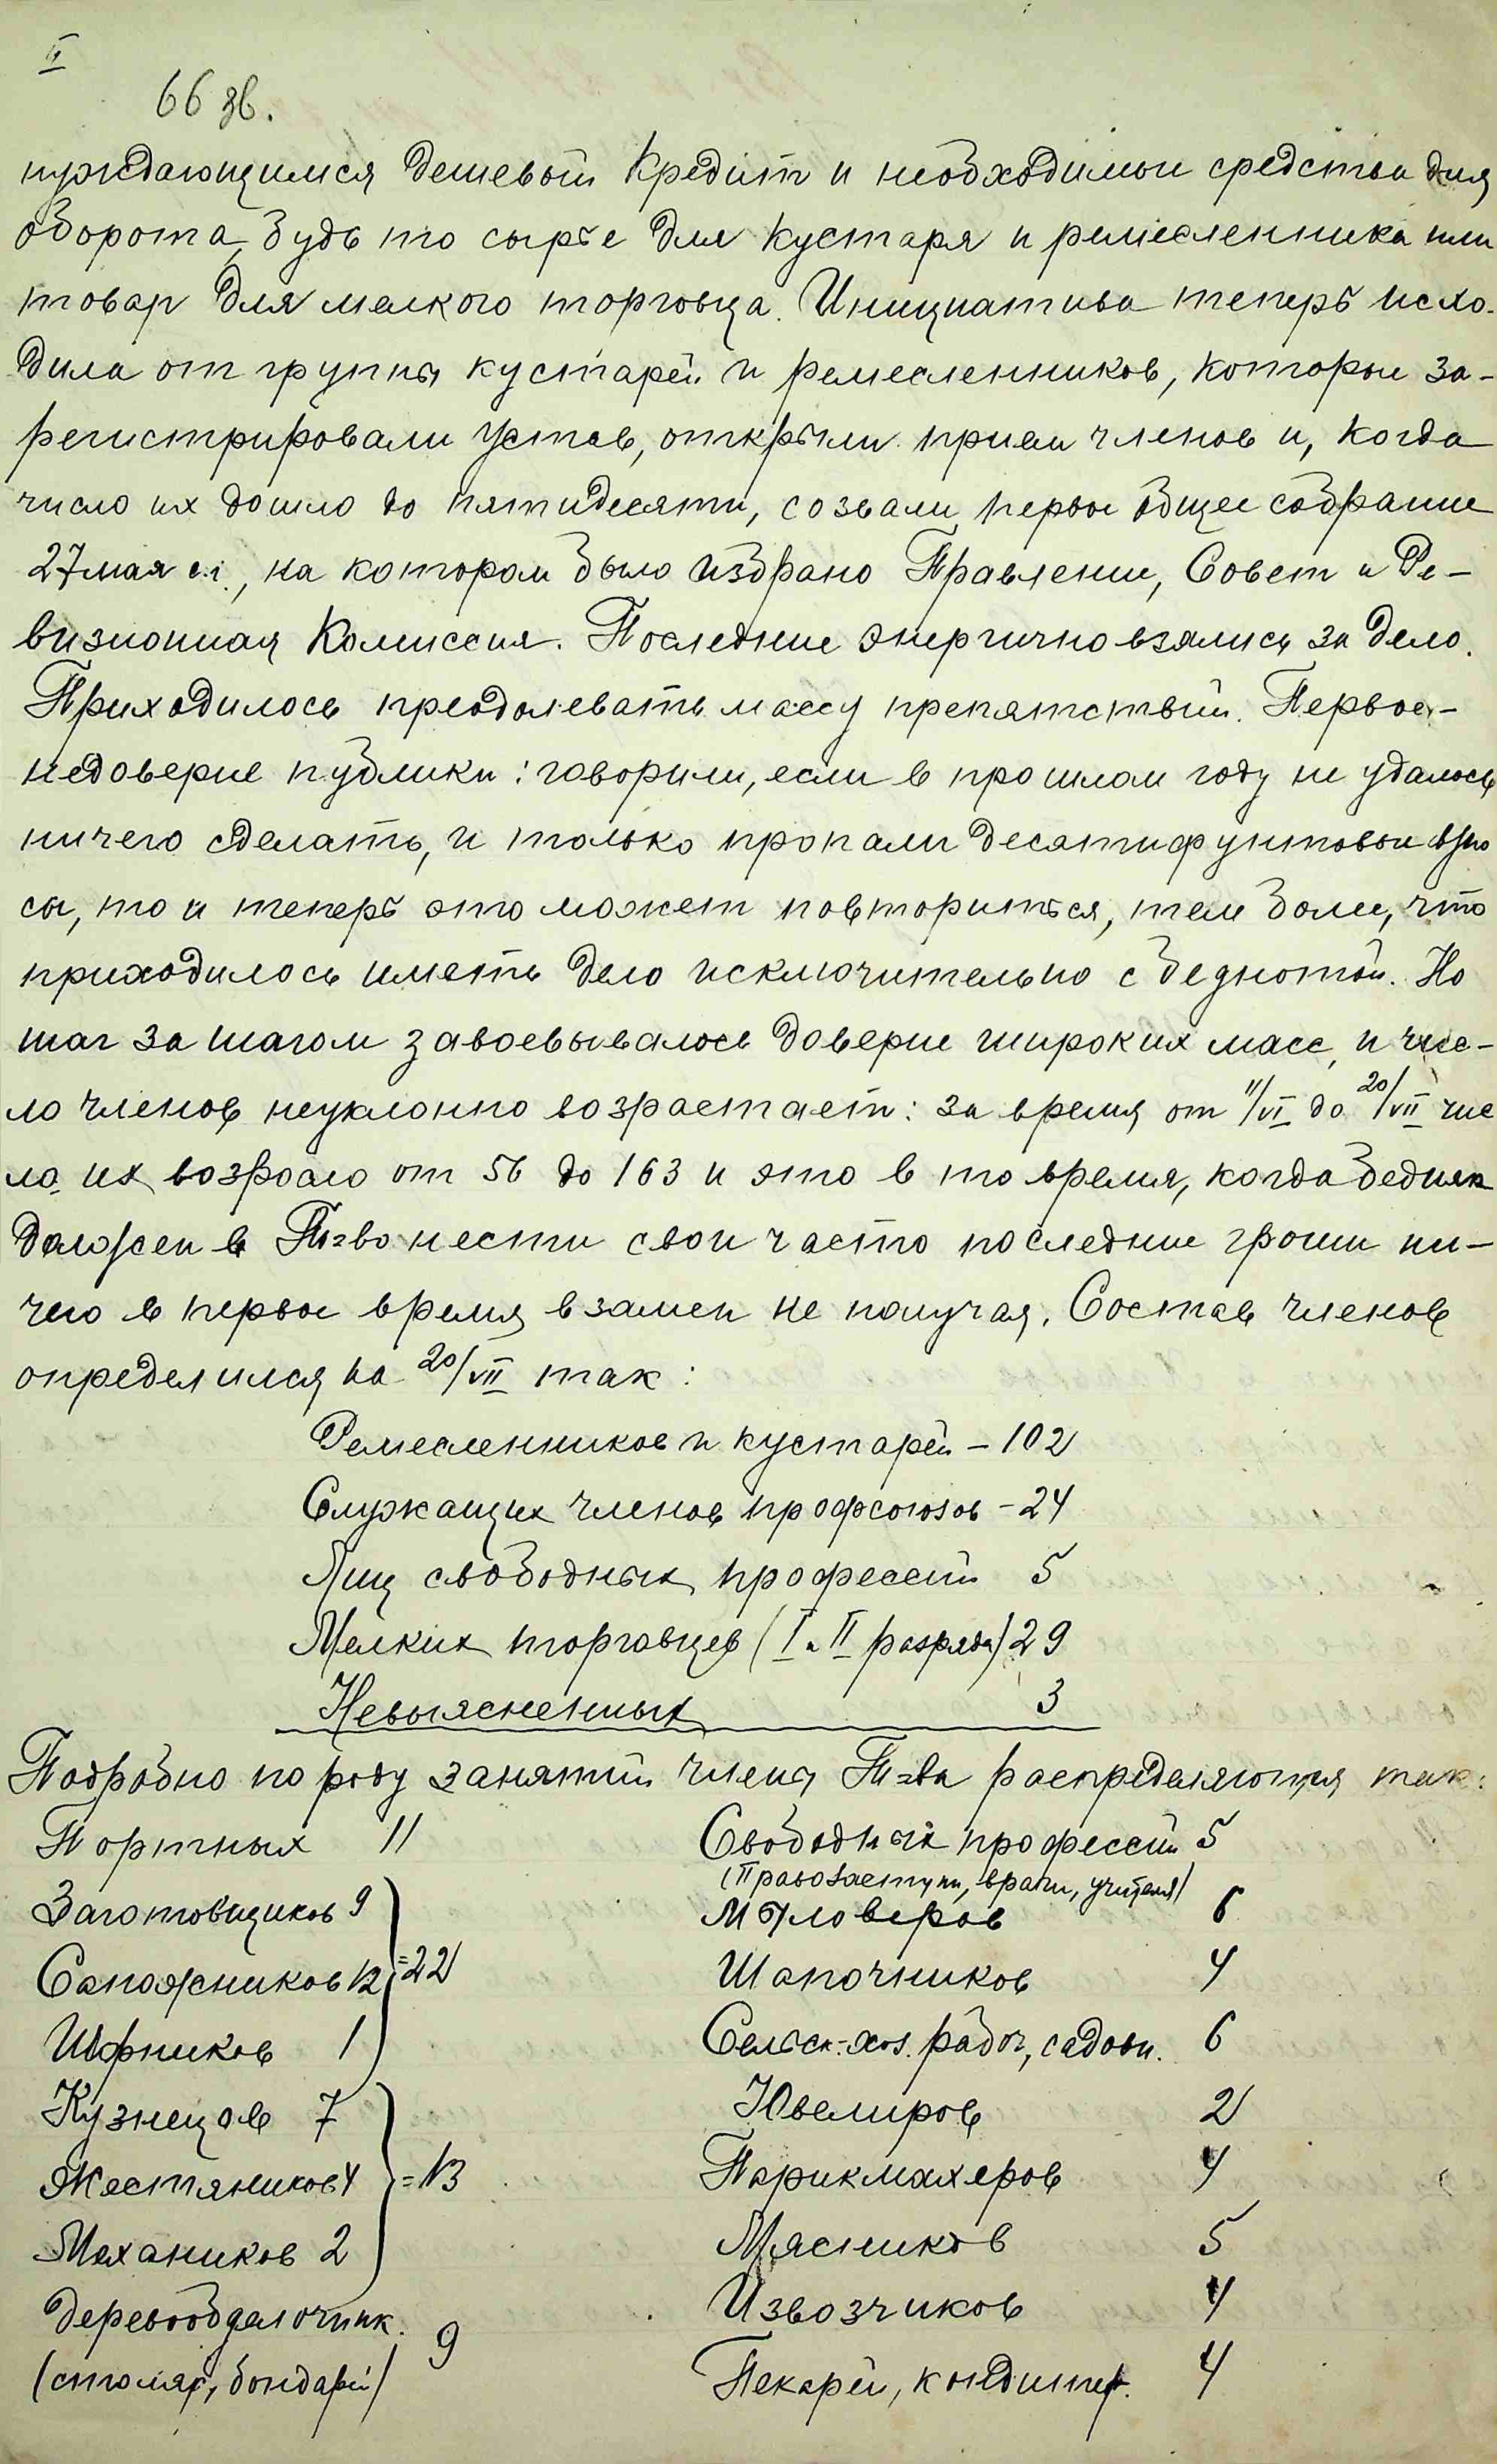 II
66 зв.
нуждающимся дешевый кредит и необходимые средства для
оборота, будь то сырье для кустаря и ремесленника или
товар для мелкого торговца. Инициатива теперь исхо-
дила от группы кустарей и ремесленников, которые за-
регистрировали устав, открыли прием членов и, когда
число их дошло до пятидесяти, созвали первое общее собрание
27 мая с.г., на котором было избрано Правление, Совет и Ре-
визионная Комиссия. Последние энергично взялись за дело.
Приходилось преодолевать массу препятствий. Первое-
недоверие публики: говорили, если в прошлом году не удалось
ничего сделать, и только пропали десятифунтовые взно
сы, то и теперь это может повториться, тем более, что
приходилось иметь дело исключительно с беднотой. Но
шаг за шагом завоевывалось доверие широких масс, и чис-
ло членов неуклонно возрастает: за время от 11/VI до 20/VII чис
ло их возросло от 56 до 163 и это в то время, когда бедняк
должен в Т-во нести свои часто последние гроши ни-
чего в первое время взамен не получая. Состав членов
определился на 20/VII так:
Ремесленников и кустарей – 102
Служащих членов профсоюзов – 24
Лиц свободных профессий 5
Мелких торговцев (I и II разряда) 29
Невыясненных 3
Подробно по роду занятий члены Т-ва распределяются так:
Портных 11
Заготовщиков 9
Сапожников 12 =22
Шорников 1
Кузнецов 7
Жестяников 4 =13
Механиков 2
Деревообделочник. 9
(столяр, бондарей)
Свободных профессий 5
(Правозаступн, врачи, учителя)
Мыловаров 6
Шапочников 4
Сельск.-хоз. рабоч, садовн. 6
Ювелиров 2
Парикмахеров 4
Мясников 5
Извозчиков 4
Пекарей, кондитер. 4